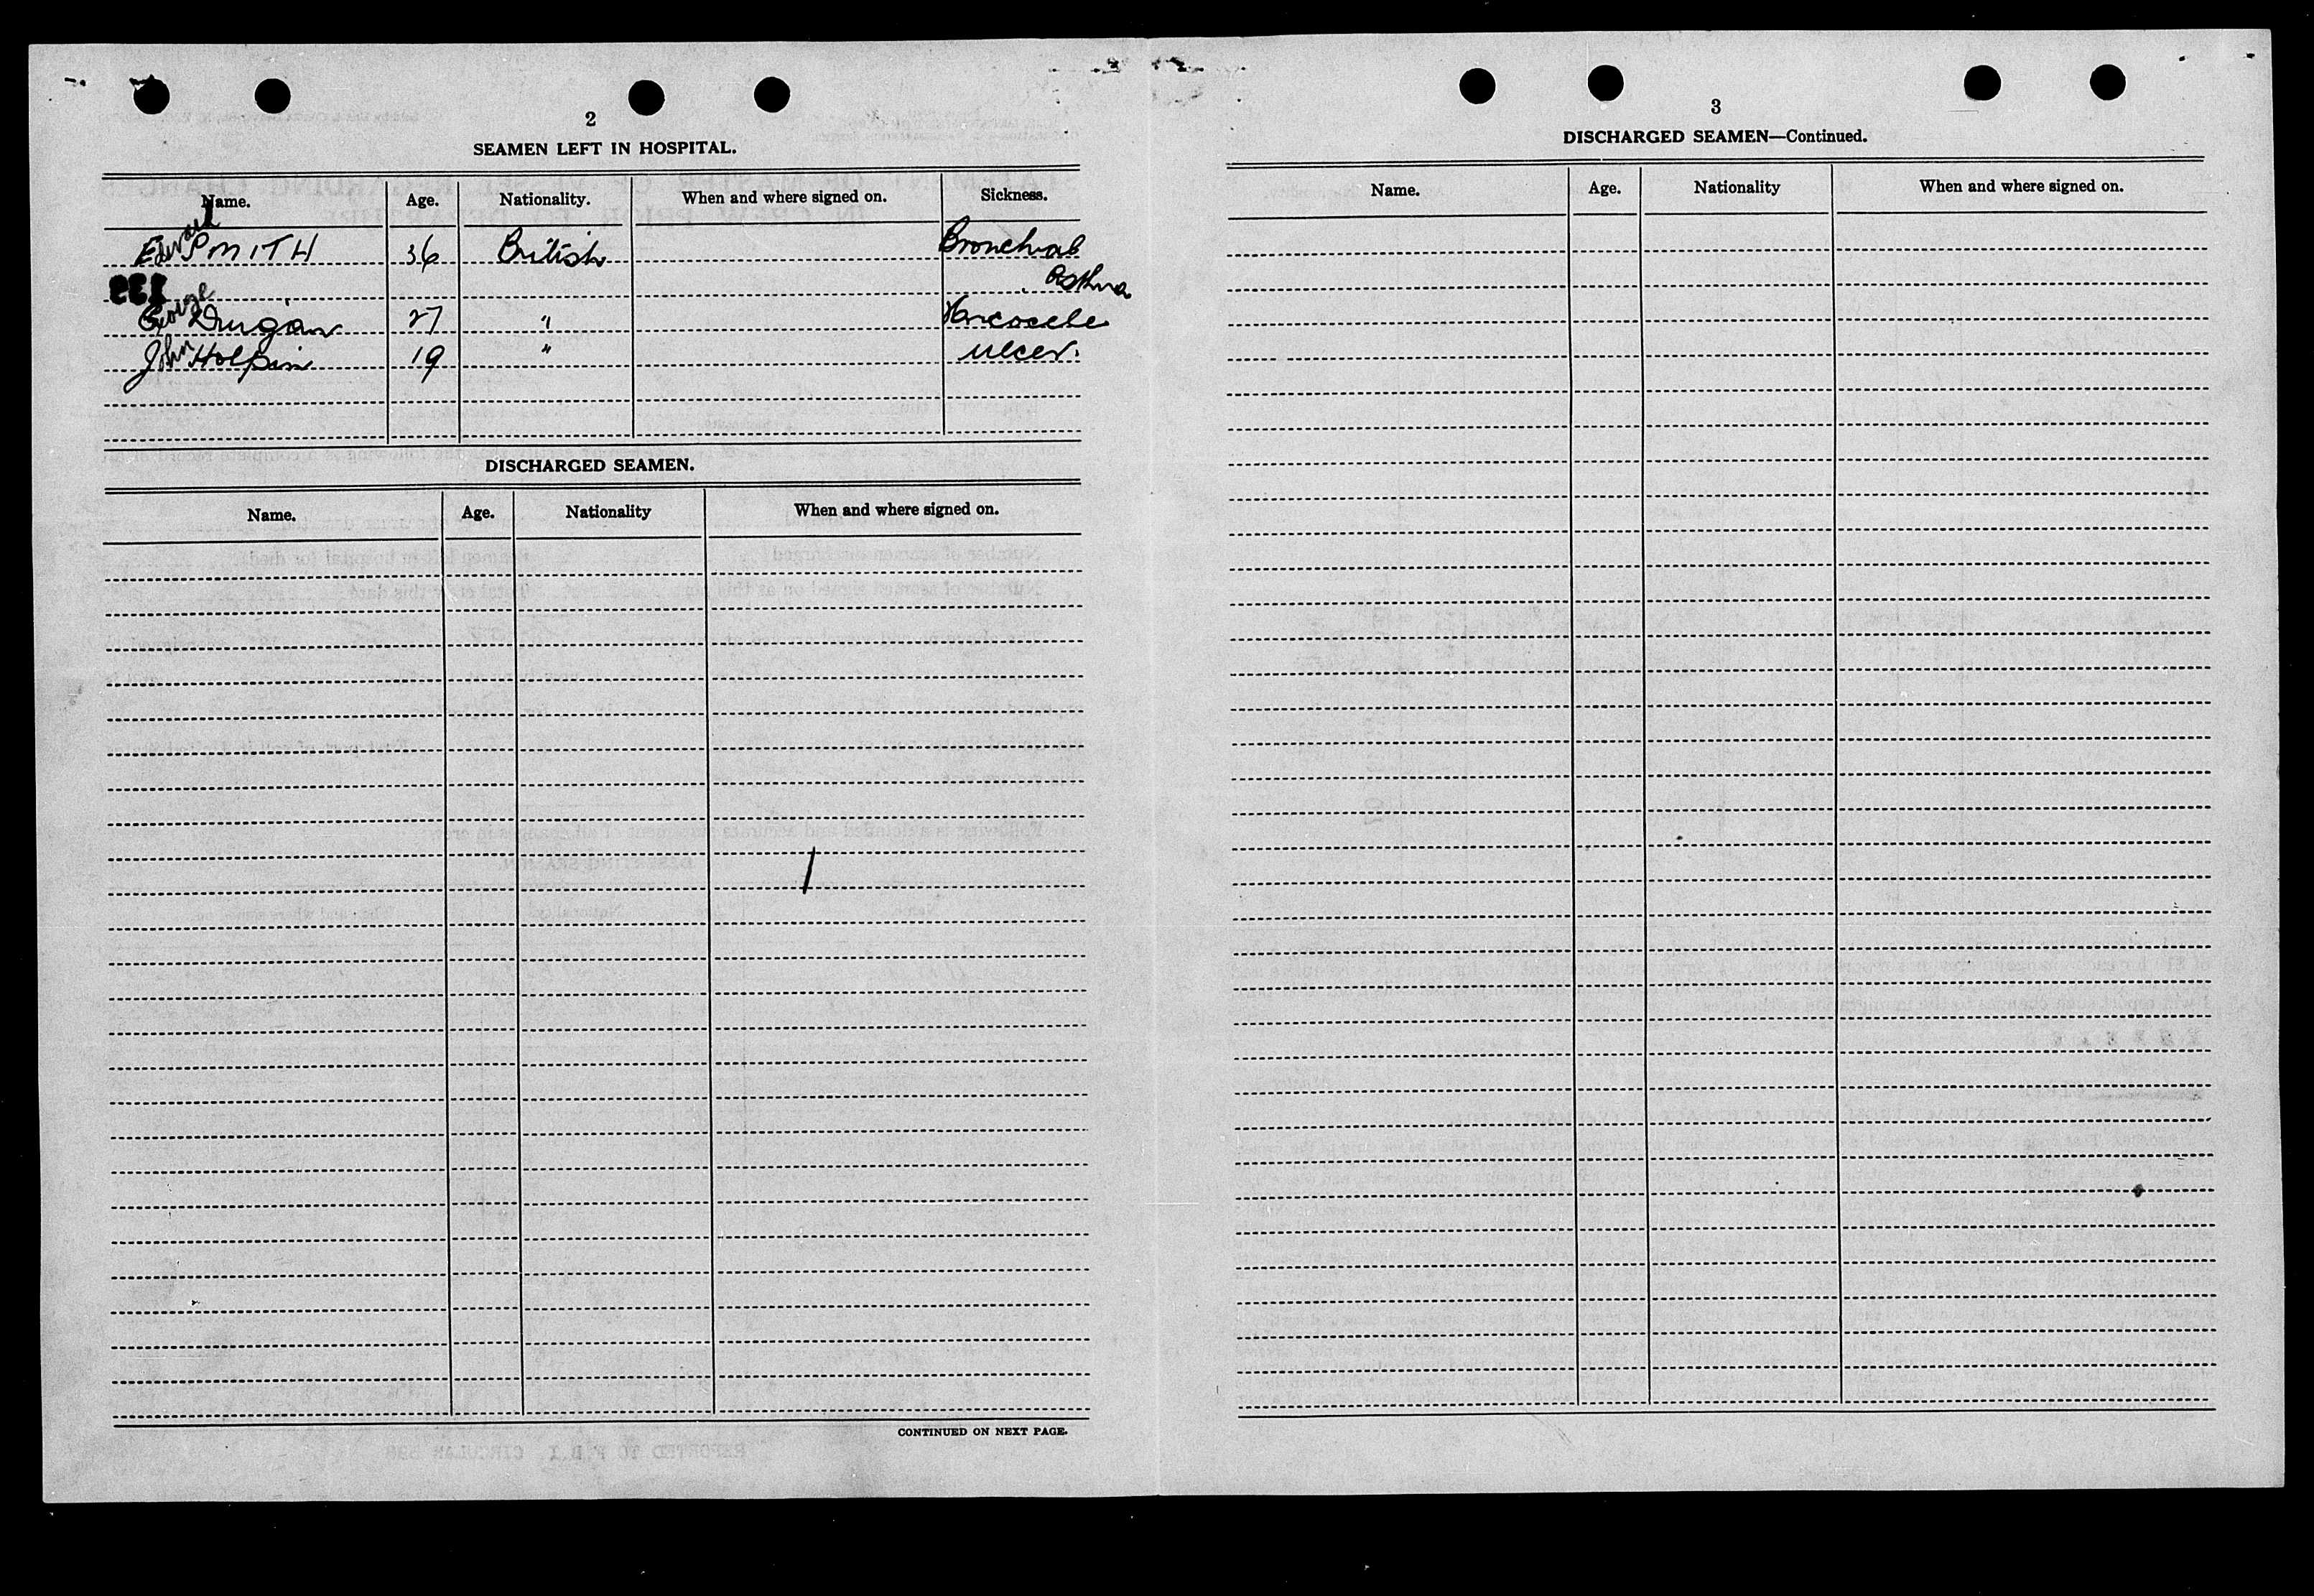 2
SEAMEN LEFT IN HOSPITAL.
Name. Age. Nationality. When and where signed on. Sickness.
Edward SMITH 36 British Bronchial
Asthma
George Durgan 27 " Varicocele
John Holpin 19 " Ulcer.
DISCHARGED SEAMEN.
Name. Age. Nationality When and where signed on.
CONTINUED ON NEXT PAGE.
3
DISCHARGED SEAMEN—Continued.
Name. Age. Nationality When and where signed on.